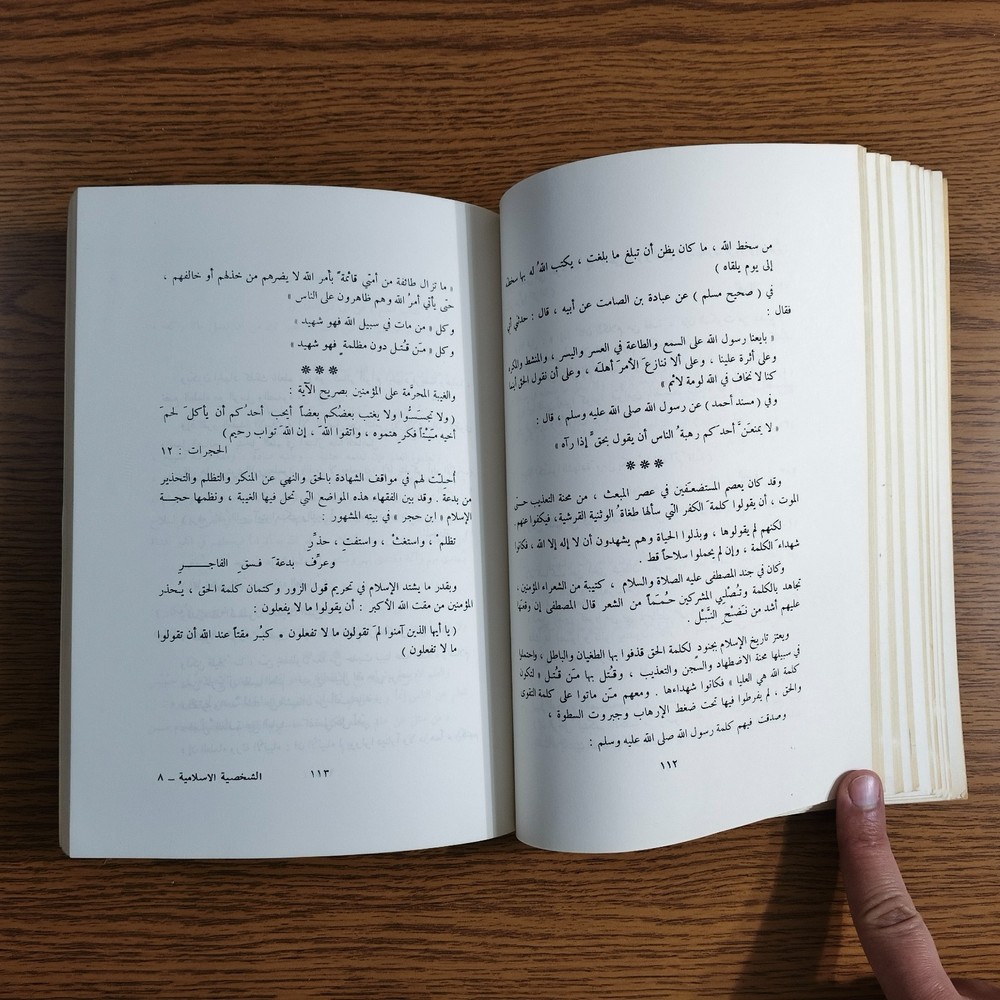 من سخط الله ، ما كان يظن أن تبلغ ما بلغت ، يكتب الله له بها سخطه
إلى يوم يلقاه )
في ( صحيح مسلم ) عن عبادة بن الصامت عن أبيه ، قال : حدثني أبي
فقال :
« بايعنا رسول الله على السمع والطاعة في العسر واليسر ، والمنشط والمكره
وعلى أثرة علينا ، وعلى ألا ننازع الأمرَ أهلَه ، وعلى أن نقول الحق أينما
كنا لا نخاف في الله لومة لائم »
وفي ( مسند أحمد ) عن رسول الله صلى الله عليه وسلم ، قال :
« لا يمنعنَّ أحدكم رهبةُ الناس أن يقول بحقٍّ إذا رآه »
***
وقد كان يعصم المستضعَفين في عصر المبعث ، من محنة التعذيب حتى
الموت ، أن يقولوا كلمةَ الكفر التي سألها طغاةُ الوثنية القرشية ، فيكفوا عنهم .
لكنهم لم يقولوها ، وبذلوا الحياة وهم يشهدون أن لا إله إلا الله ، فكانوا
شهداءَ الكلمة ، وإن لم يحملوا سلاحاً قط .
وكان في جند المصطفى عليه الصلاة والسلام ، كتيبة من الشعراء المؤمنين ،
تجاهد بالكلمة وتُصلي المشركين حُمَماً من الشعر قال المصطفى إن وقعتها
عليهم أشد من نَضْحِ النَّبْل .
ويعتز تاريخ الإسلام بجنودٍ لكلمة الحق قذفوا بها الطغيان والباطل ، واحتملوا
في سبيلها محنة الاضطهاد والسجن والتعذيب ، وقُتل بها مَن قُتل « لتكون
كلمة الله هي العليا » فكانوا شهداءها . ومعهم مَن ماتوا على كلمة التقوى
والحق ، لم يفرطوا فيها تحت ضغط الإرهاب وجبروت السطوة ،
وصدقت فيهم كلمة رسول الله صلى الله عليه وسلم :
١١٢
« ما تزال طائفة من أمتي قائمةً بأمر الله لا يضرهم من خذلهم أو خالفهم ،
حتى يأتي أمرُ الله وهم ظاهرون على الناس »
وكل « من مات في سبيل الله فهو شهيد »
وكل « مَن قُتل دون مظلمةٍ فهو شهيد »
***
والغيبة المحرَّمة على المؤمنين بصريح الآية :
( ولا تجسَسُوا ولا يغتب بعضُكم بعضاً أيحب أحدُكم أن يأكلَ لحمَ
أخيه مَيْتاً فكرهتموه ، واتقوا اللهَ ، إن اللهَ تواب رحيم )
الحجرات : ١٢
أُحِلّت لهم في مواقف الشهادة بالحق والنهي عن المنكر والتظلم والتحذير
من بدعةَ . وقد بين الفقهاء هذه المواضع التي تحل فيها الغيبة ، ونظمها حجة
الإسلام « ابن حجر » في بيته المشهور :
تظلمْ ، واستغثْ ، واستفتِ ، حذِّر
وعرِّف بدعةَ فسق الفاجر
وبقدر ما يشتد الإسلام في تحريم قول الزور وكتمان كلمة الحق ، يُحذر
المؤمنين من مقت الله الأكبر : أن يقولوا ما لا يفعلون :
( يا أيها الذين آمنوا لمَ تقولون ما لا تفعلون * كبُر مقتاً عند الله أن تقولوا
ما لا تفعلون )
١١٣
الشخصية الاسلامية ــ ٨